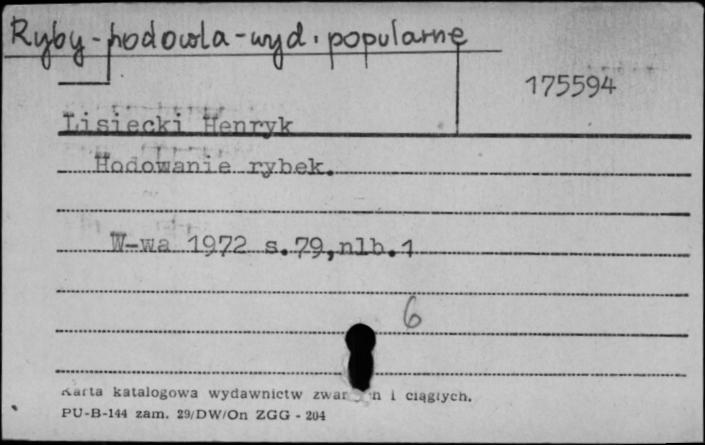 Ryby - hodowla - wyd. popularne
175594
Lisiecki Henryk
Hodowanie rybek.
W-wa 1972 s.79,nlb.1
6
Karta katalogowa wydawnictw i ciągłych.
PU-B-144 zam. 29/DW/On ZGG - 204